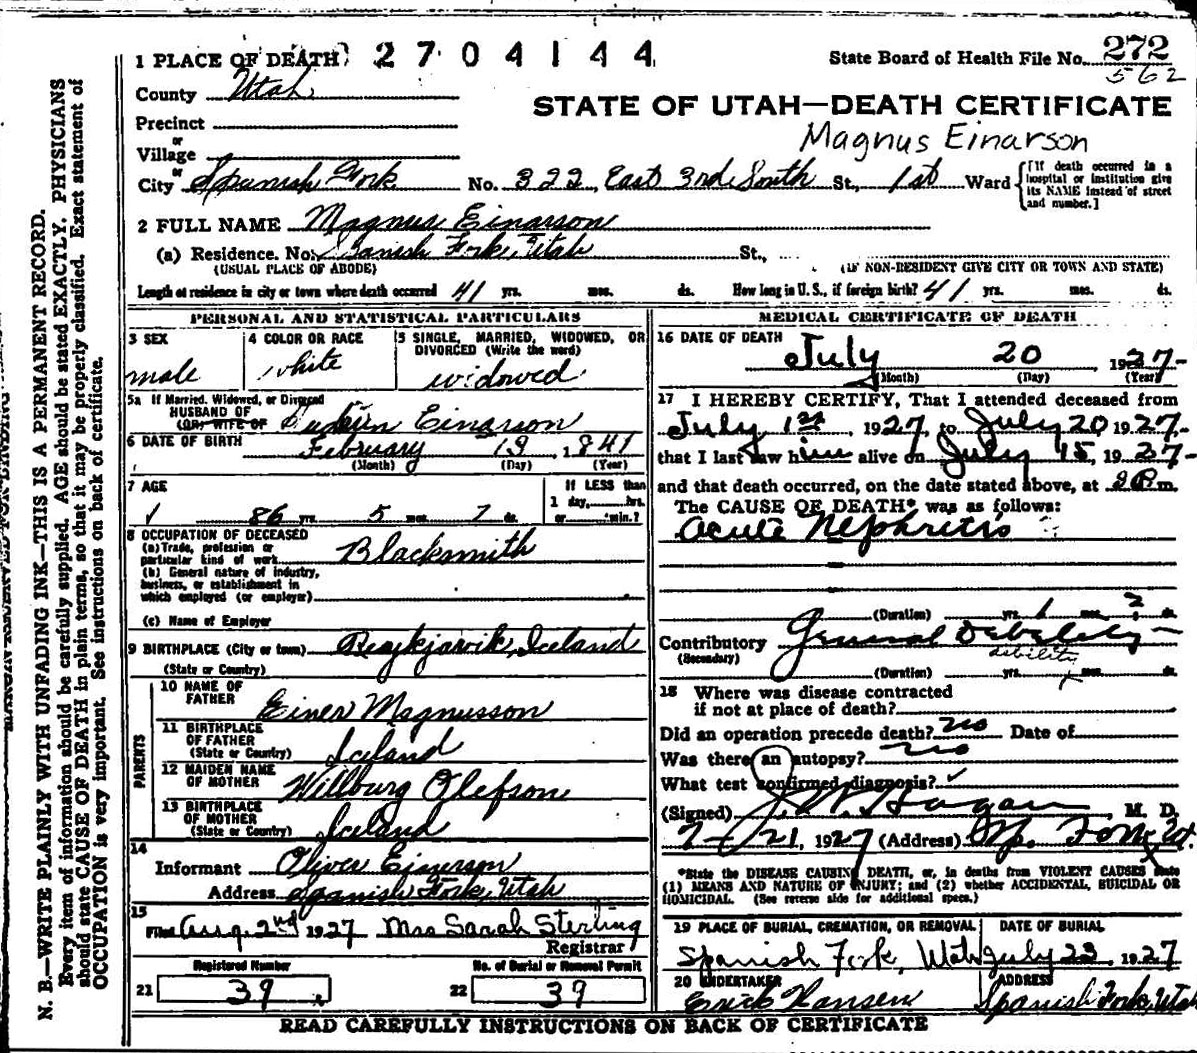 1 PLACE OF DEATH 2704144
State Board of Health File No. 272
562
County Utah
STATE OF UTAH—DEATH CERTIFICATE
Precinct
Magnus Einarson
or
Village
or
City Spanish Fork No. 322, East 3rd South St., 1st Ward
[If death occurred in a hospital or institution give its NAME instead of street and number.]
2 FULL NAME Magnus Einarson
(a) Residence. No. Spanish Fork, Utah St.,
(USUAL PLACE OF ABODE) (IF NON-RESIDENT GIVE CITY OR TOWN AND STATE)
Length of residence in city or town where death occurred 41 yrs. mos. ds. How long in U. S., if foreign birth? 41 yrs. mos. ds.
PERSONAL AND STATISTICAL PARTICULARS
3 SEX
male
4 COLOR OR RACE
white
5 SINGLE, MARRIED, WIDOWED, OR
DIVORCED (Write the word)
widowed
5a If Married, Widowed, or Divorced
HUSBAND OF
(OR) WIFE OF Einarson
6 DATE OF BIRTH February 13, 1841
(Month) (Day) (Year)
7 AGE
If LESS than
1 day, hrs.
86 yrs. 5 mos. 7 ds. or min.?
8 OCCUPATION OF DECEASED
(a) Trade, profession or
particular kind of work Blacksmith
(b) General nature of industry,
business, or establishment in
which employed (or employer)
(c) Name of Employer
9 BIRTHPLACE (City or town) Reykjavik, Iceland
(State or Country)
PARENTS
10 NAME OF
FATHER Einer Magnusson
11 BIRTHPLACE
OF FATHER
(State or Country) Iceland
12 MAIDEN NAME
OF MOTHER Willburg Olefson
13 BIRTHPLACE
OF MOTHER
(State or Country) Iceland
14
Informant Oliver Einerson
Address Spanish Fork, Utah
15
Filed Aug. 2nd 1927 Mrs Sarah Sterling
Registrar
Registered Number No. of Burial or Removal Permit
21 39 22 39
MEDICAL CERTIFICATE OF DEATH
16 DATE OF DEATH
July 20 1927
(Month) (Day) (Year)
17 I HEREBY CERTIFY, That I attended deceased from
July 1st, 1927, to July 20 1927
that I last saw him alive on July 15, 1927
and that death occurred, on the date stated above, at m.
The CAUSE OF DEATH* was as follows:
Acute Nephretis
(Duration) yrs. 1 mos. ? ds.
Contributory General Debelety
(Secondary) debility
(Duration) yrs. mos. ds.
18 Where was disease contracted
if not at place of death?
Did an operation precede death? no Date of
Was there an autopsy? no
What test confirmed diagnosis? ✓
(Signed) J. W. Hagan M. D.
7-21, 1927 (Address) Sp. Fork, Ut.
*State the DISEASE CAUSING DEATH, or, in deaths from VIOLENT CAUSES state
(1) MEANS AND NATURE OF INJURY; and (2) whether ACCIDENTAL, SUICIDAL OR
HOMICIDAL. (See reverse side for additional space.)
19 PLACE OF BURIAL, CREMATION, OR REMOVAL DATE OF BURIAL
Spanish Fork, Utah July 23 1927
20 UNDERTAKER ADDRESS
Erick Hansen Spanish Fork, Utah
READ CAREFULLY INSTRUCTIONS ON BACK OF CERTIFICATE
N. B.—WRITE PLAINLY WITH UNFADING INK—THIS IS A PERMANENT RECORD.
Every item of information should be carefully supplied. AGE should be stated EXACTLY. PHYSICIANS
should state CAUSE OF DEATH in plain terms, so that it may be properly classified. Exact statement of
OCCUPATION is very important. See instructions on back of certificate.